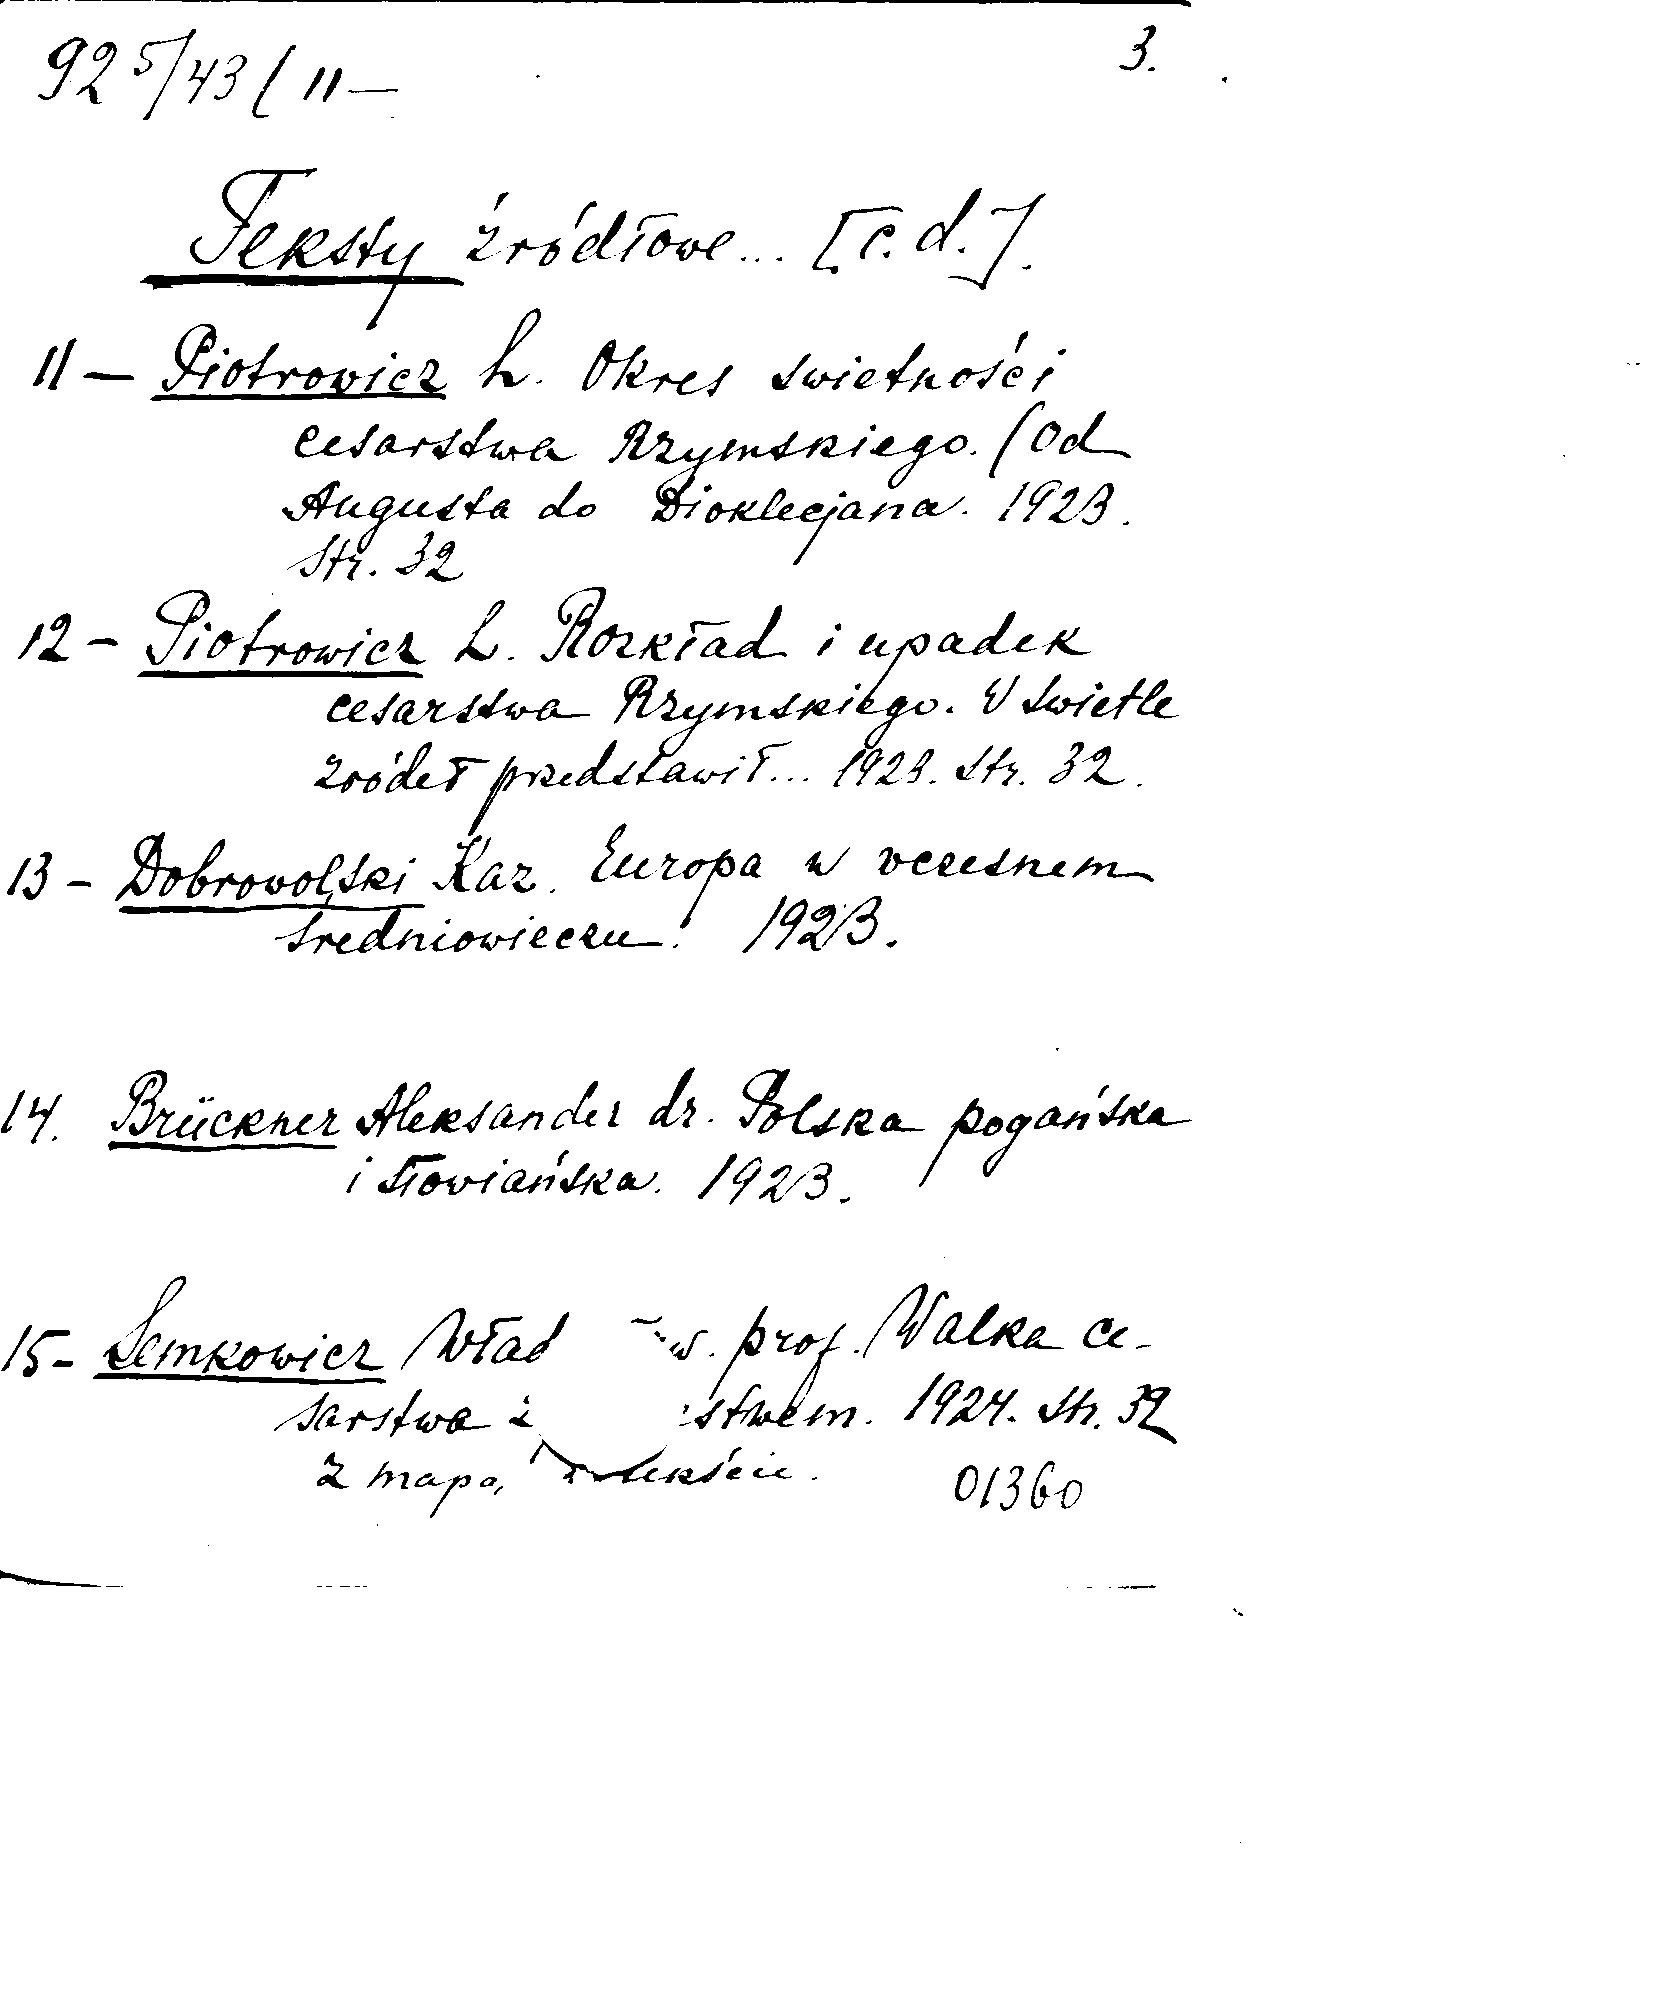 925/43/11-
3.
Teksty źródłowe... [c.d.].
11 - Piotrowicz L. Okres świetności
cesarstwa Rzymskiego. (Od
Augusta do Dioklecjana. 1923.
Str. 32
12 - Piotrowicz L. Rozkład i upadek
cesarstwa Rzymskiego. W swietle
zródeł przedstawił... 1923. Str. 32.
13 - Dobrowolski Kaz. Europa w wczesnem
średniowieczu. 1923.
14. Brückner Aleksander dr. Polska pogańska
i słowiańska. 1923.
15 - Semkowicz Wład w. prof. Walka ce-
sarstwa z stwem. 1924. Str. 32
z mapą w tekście.
01360